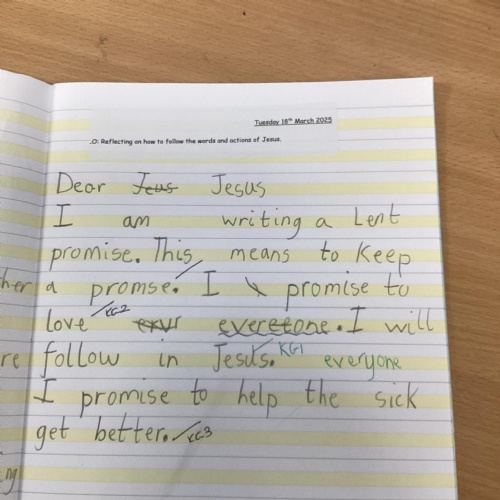 Tuesday 18th March 2025
.O: Reflecting on how to follow the words and actions of Jesus.
Dear Jeus Jesus
I am writing a Lent
promise. This means to keep
her a promse. I promise to
KC2
love everetone. I will
re follow in Jesus. KG1 everyone
I promise to help the sick
get better. KC3
ng